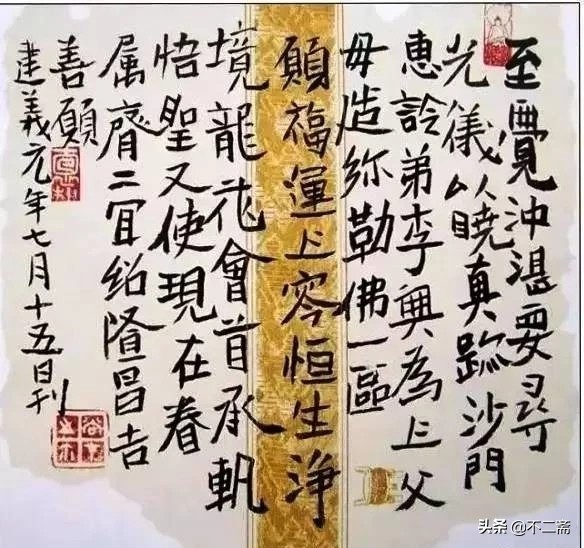 至覺沖湛要尋
光儀以曉真蹤沙門
惠詅弟李興為亡父
母造弥勒佛一區
願福運上容恒生淨
境龍花會首承軌
悟聖又使現在眷
属齊二冝绍隆昌吉
善願
建義元年七月十五日刊
头条 @不二斋